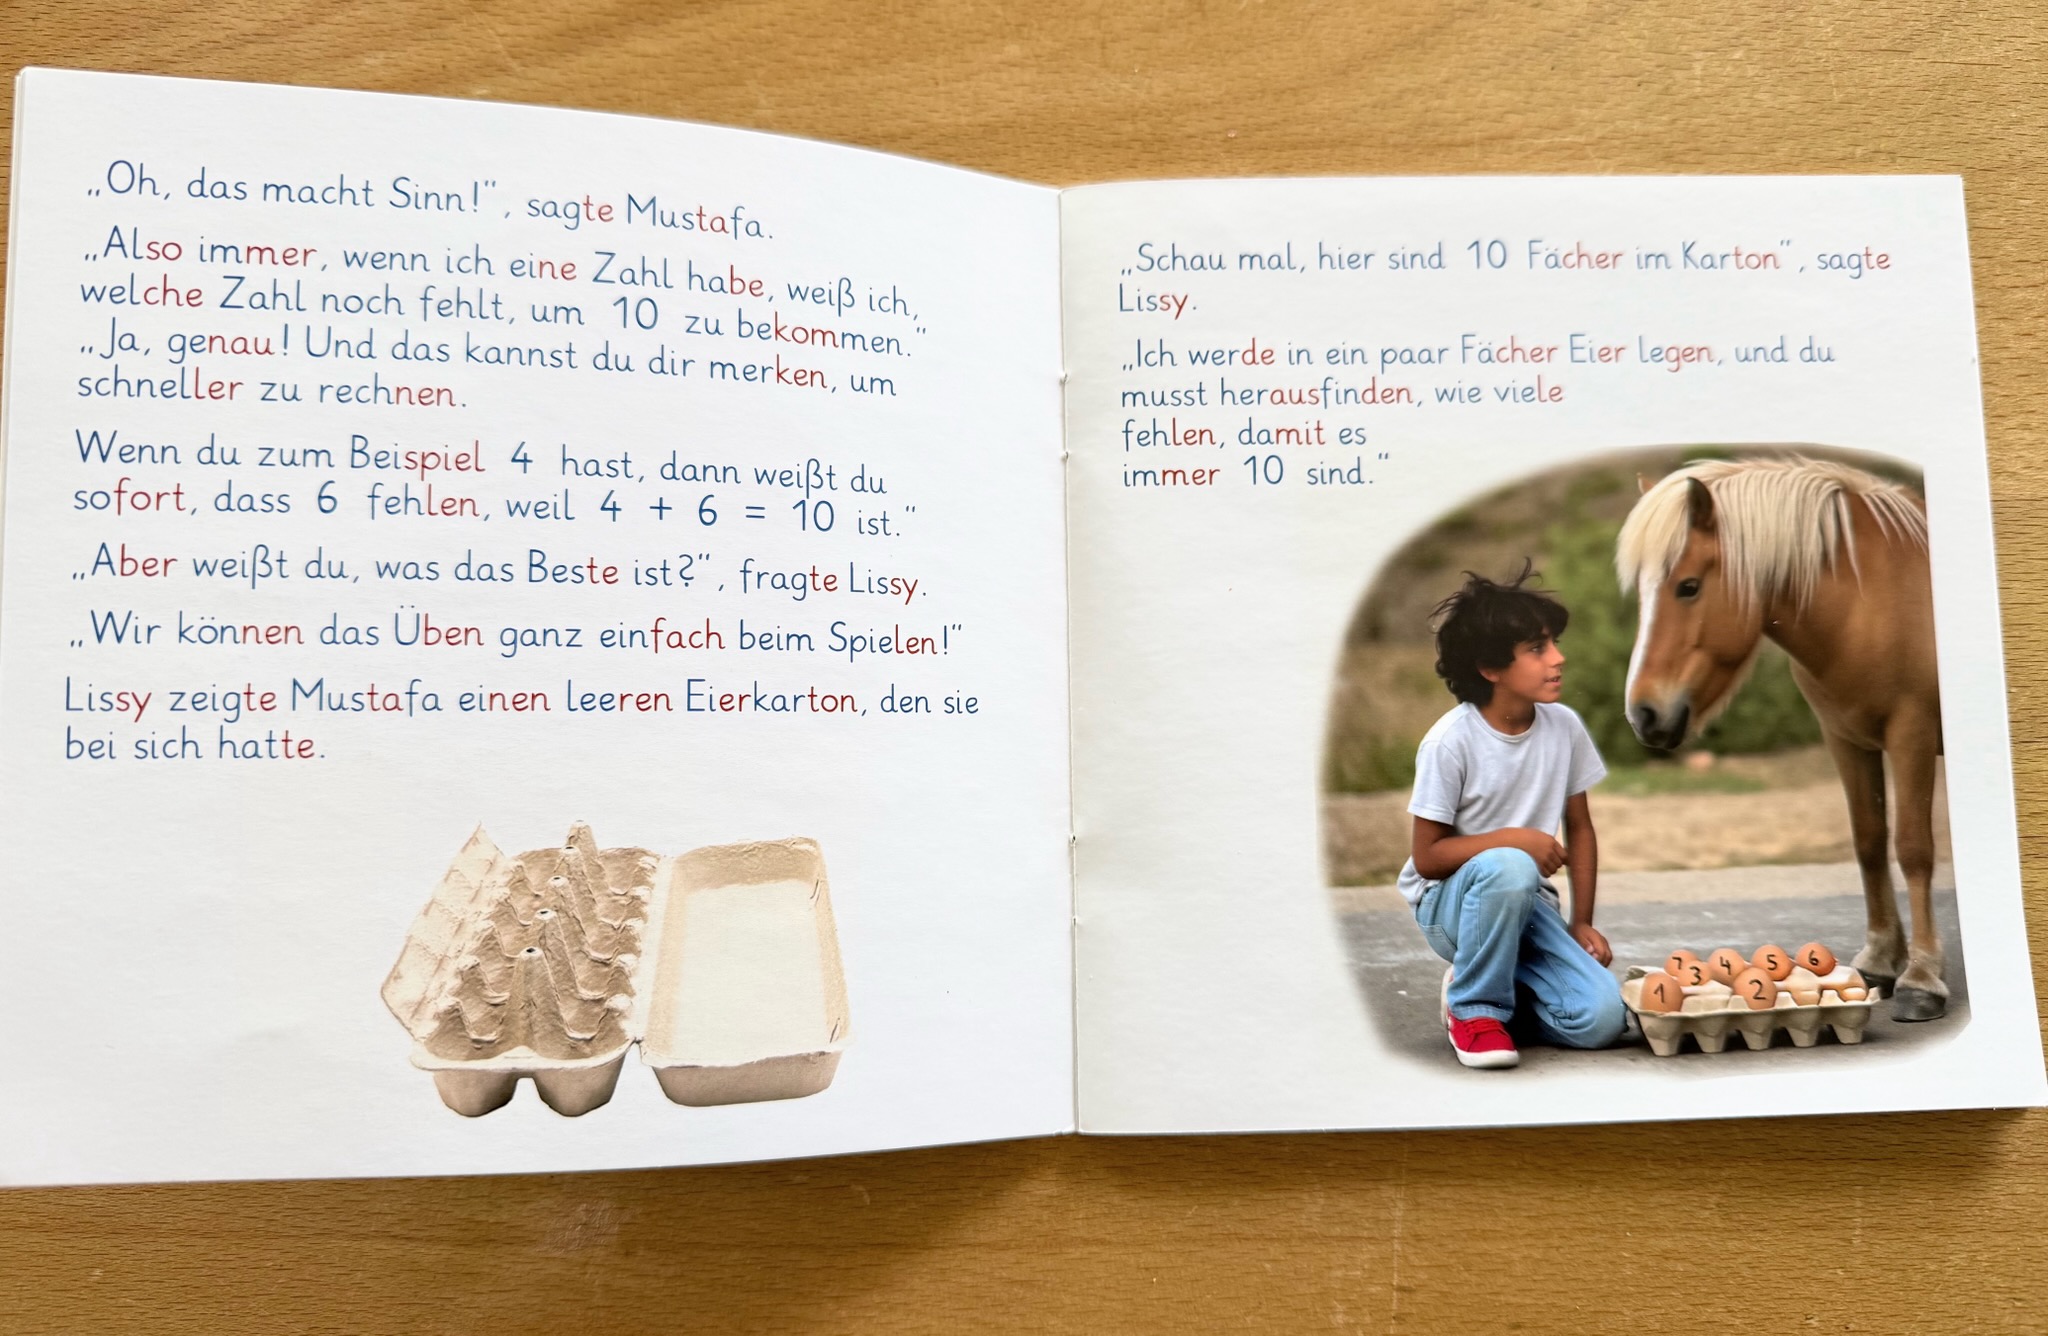 „Oh, das macht Sinn!", sagte Mustafa.
„Also immer, wenn ich eine Zahl habe, weiß ich,
welche Zahl noch fehlt, um 10 zu bekommen."
„Ja, genau! Und das kannst du dir merken, um
schneller zu rechnen.
Wenn du zum Beispiel 4 hast, dann weißt du
sofort, dass 6 fehlen, weil 4 + 6 = 10 ist."
„Aber weißt du, was das Beste ist?", fragte Lissy.
„Wir können das Üben ganz einfach beim Spielen!"
Lissy zeigte Mustafa einen leeren Eierkarton, den sie
bei sich hatte.
„Schau mal, hier sind 10 Fächer im Karton", sagte
Lissy.
„Ich werde in ein paar Fächer Eier legen, und du
musst herausfinden, wie viele
fehlen, damit es
immer 10 sind."
7 3 4 5 6
1 2